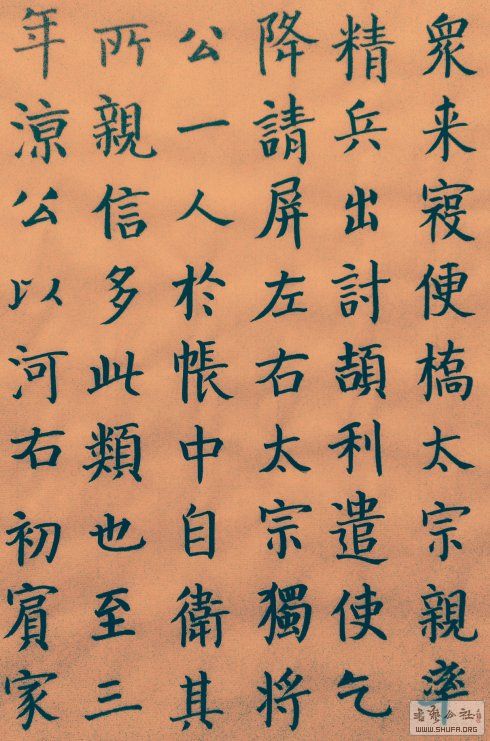 眾来寇便橋太宗親率
精兵出討頡利遣使乞
降請屏左右太宗獨將
公一人於帳中自衛其
所親信多此類也至三
年涼公以河右初賓家
WWW.SHUFA.ORG